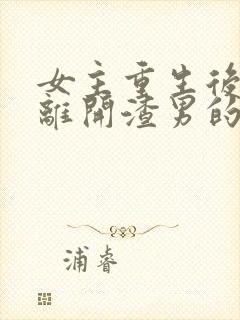 女主重生後
離開渣男的
浦睿